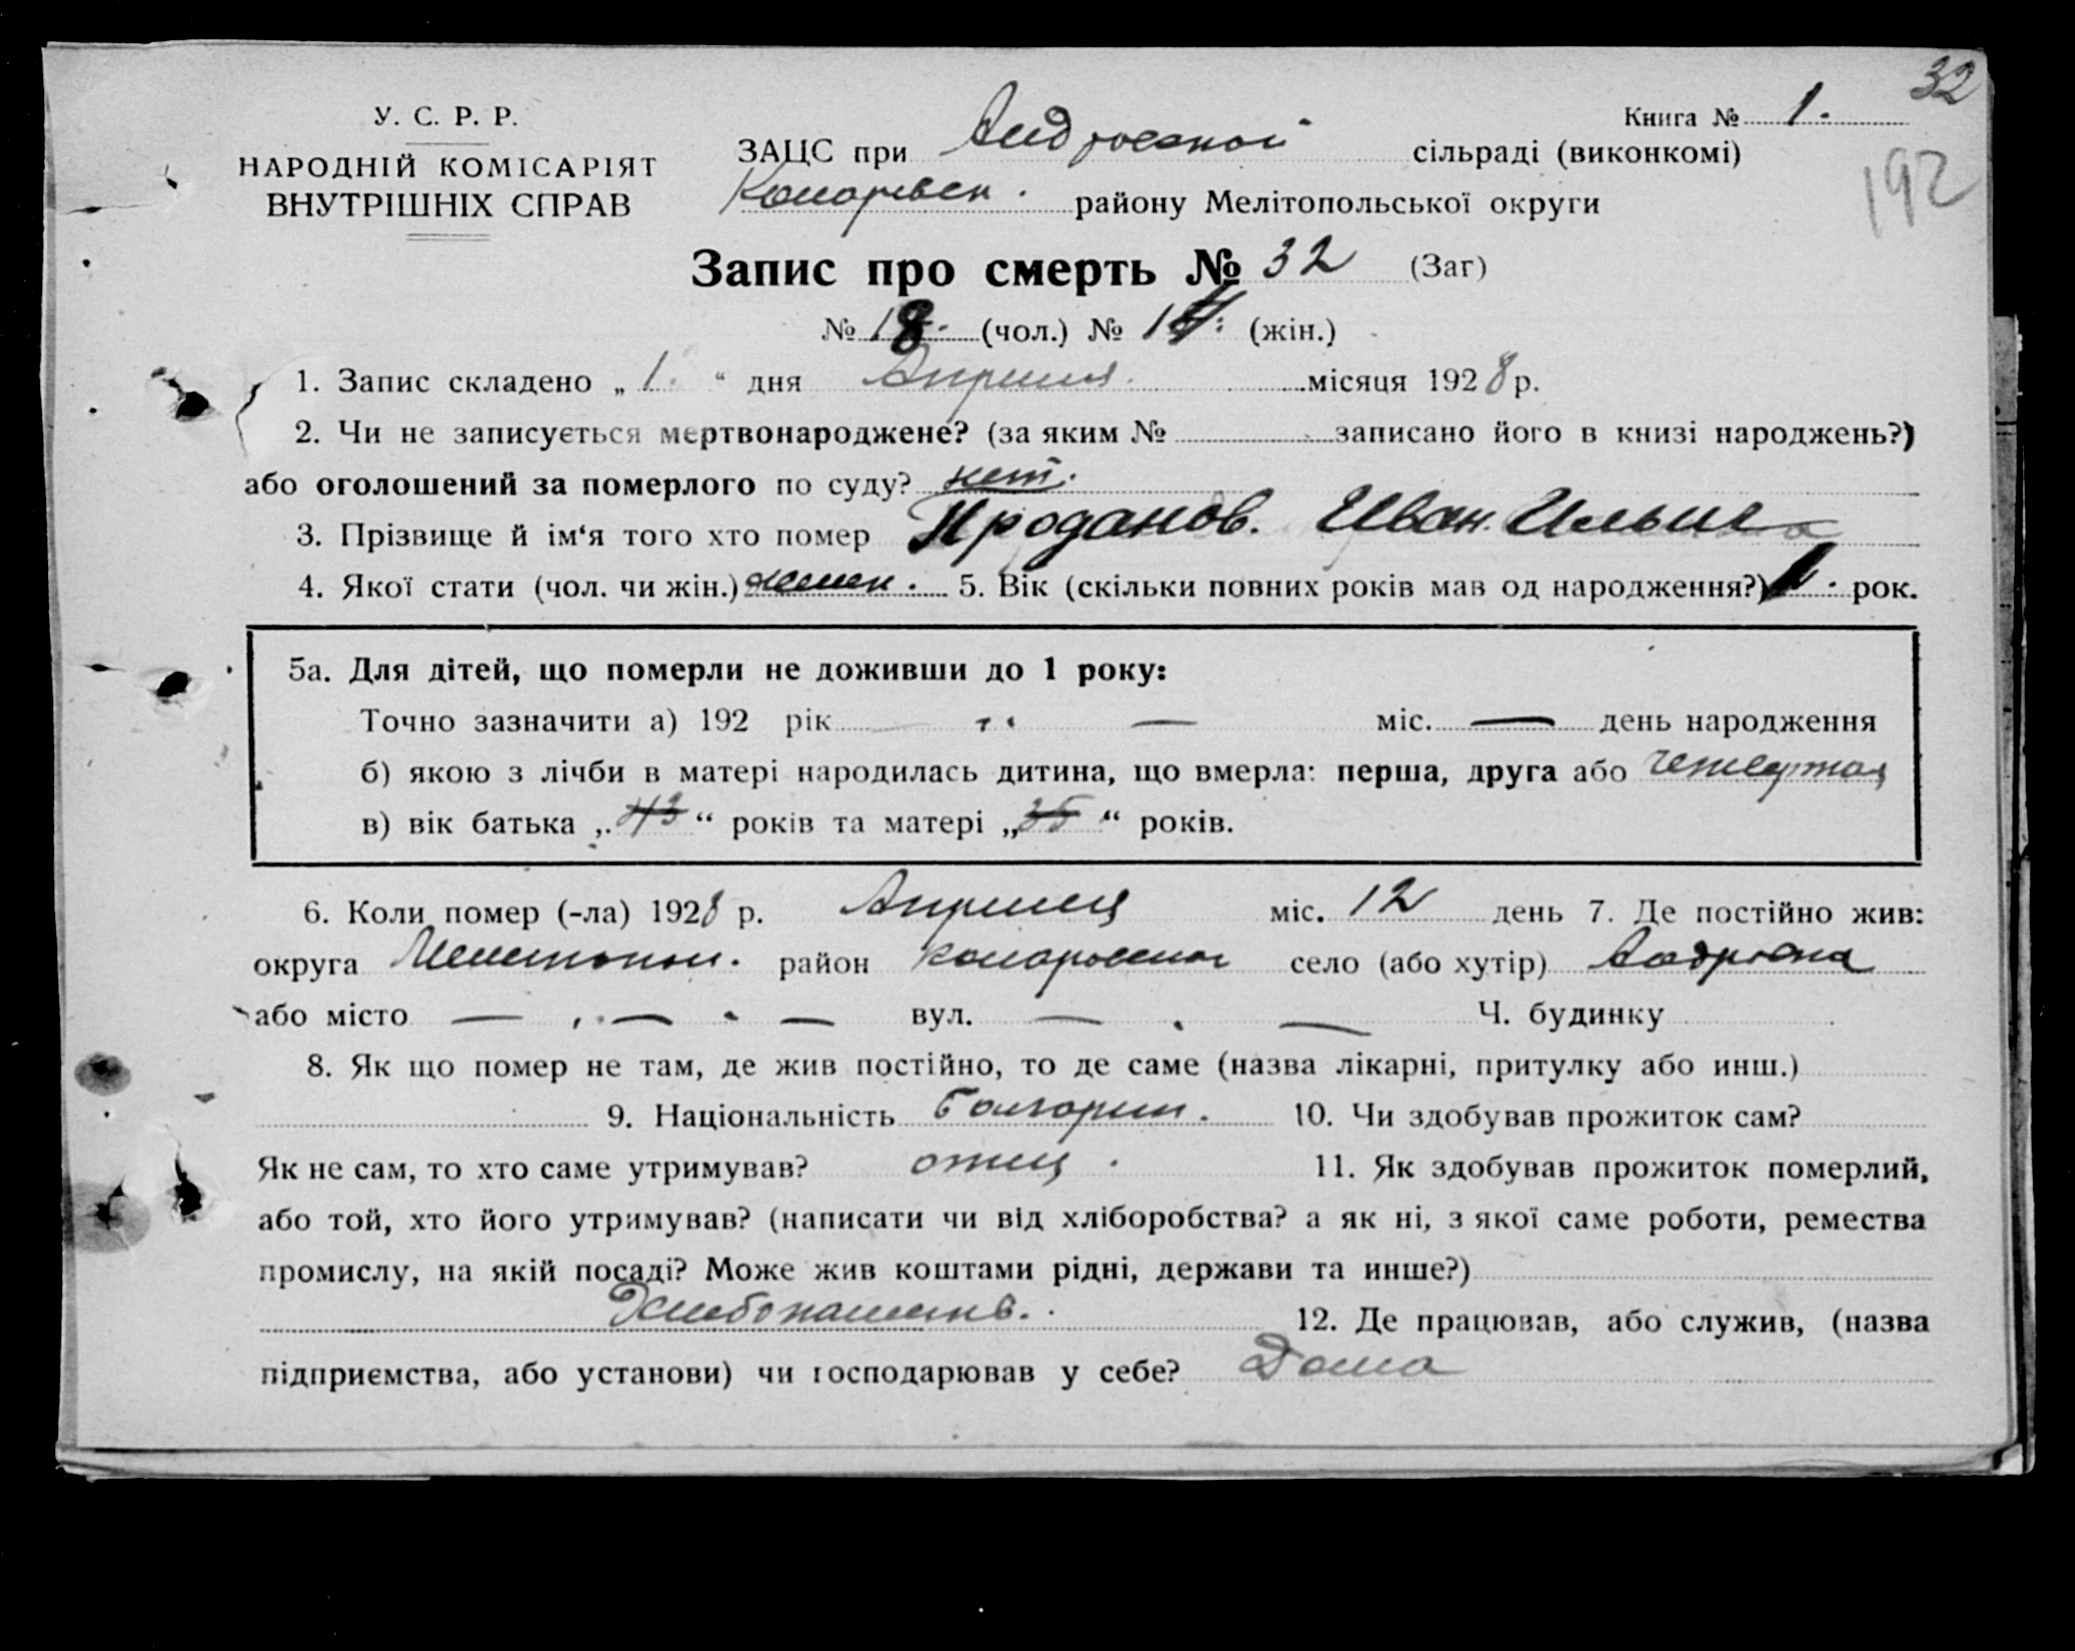 32
У. С. Р. Р.
НАРОДНІЙ КОМІСАРІЯТ
ВНУТРІШНІХ СПРАВ
Книга № 1.
192
ЗАЦС при сільраді (виконкомі)
району Мелітопольської округи
Запис про смерть № 32 (Заг)
№ 18. (чол.) № 14: (жін.)
1. Запис складено „ 1. “ дня Апреля. місяця 1928 р.
2. Чи не записується мертвонароджене? (за яким № записано його в книзі народжень?)
або оголошений за померлого по суду? нет.
3. Прізвище й ім‘я того хто помер Проданов. Иван. Ильич
4. Якої стати (чол. чи жін.) 5. Вік (скільки повних років мав од народження?) 1. рок.
5а. Для дітей, що померли не доживши до 1 року:
Точно зазначити а) 192 рік — міс. — день народження
б) якою з лічби в матері народилась дитина, що вмерла: перша, друга або четвертая
в) вік батька „ 43 “ років та матері „ 35 “ років.
6. Коли помер (-ла) 1928 р. Апреля міс. 12 день 7. Де постійно жив:
округа Мелитопол. район село (або хутір)
або місто — — — вул. — — Ч. будинку
8. Як що помер не там, де жив постійно, то де саме (назва лікарні, притулку або инш.)
9. Національність Болгарин. 10. Чи здобував прожиток сам?
Як не сам, то хто саме утримував? отец. 11. Як здобував прожиток померлий,
або той, хто його утримував? (написати чи від хліборобства? а як ні, з якої саме роботи, ремества
промислу, на якій посаді? Може жив коштами рідні, держави та инше?)
Хлебопашеств. 12. Де працював, або служив, (назва
підприємства, або установи) чи господарював у себе? Дома